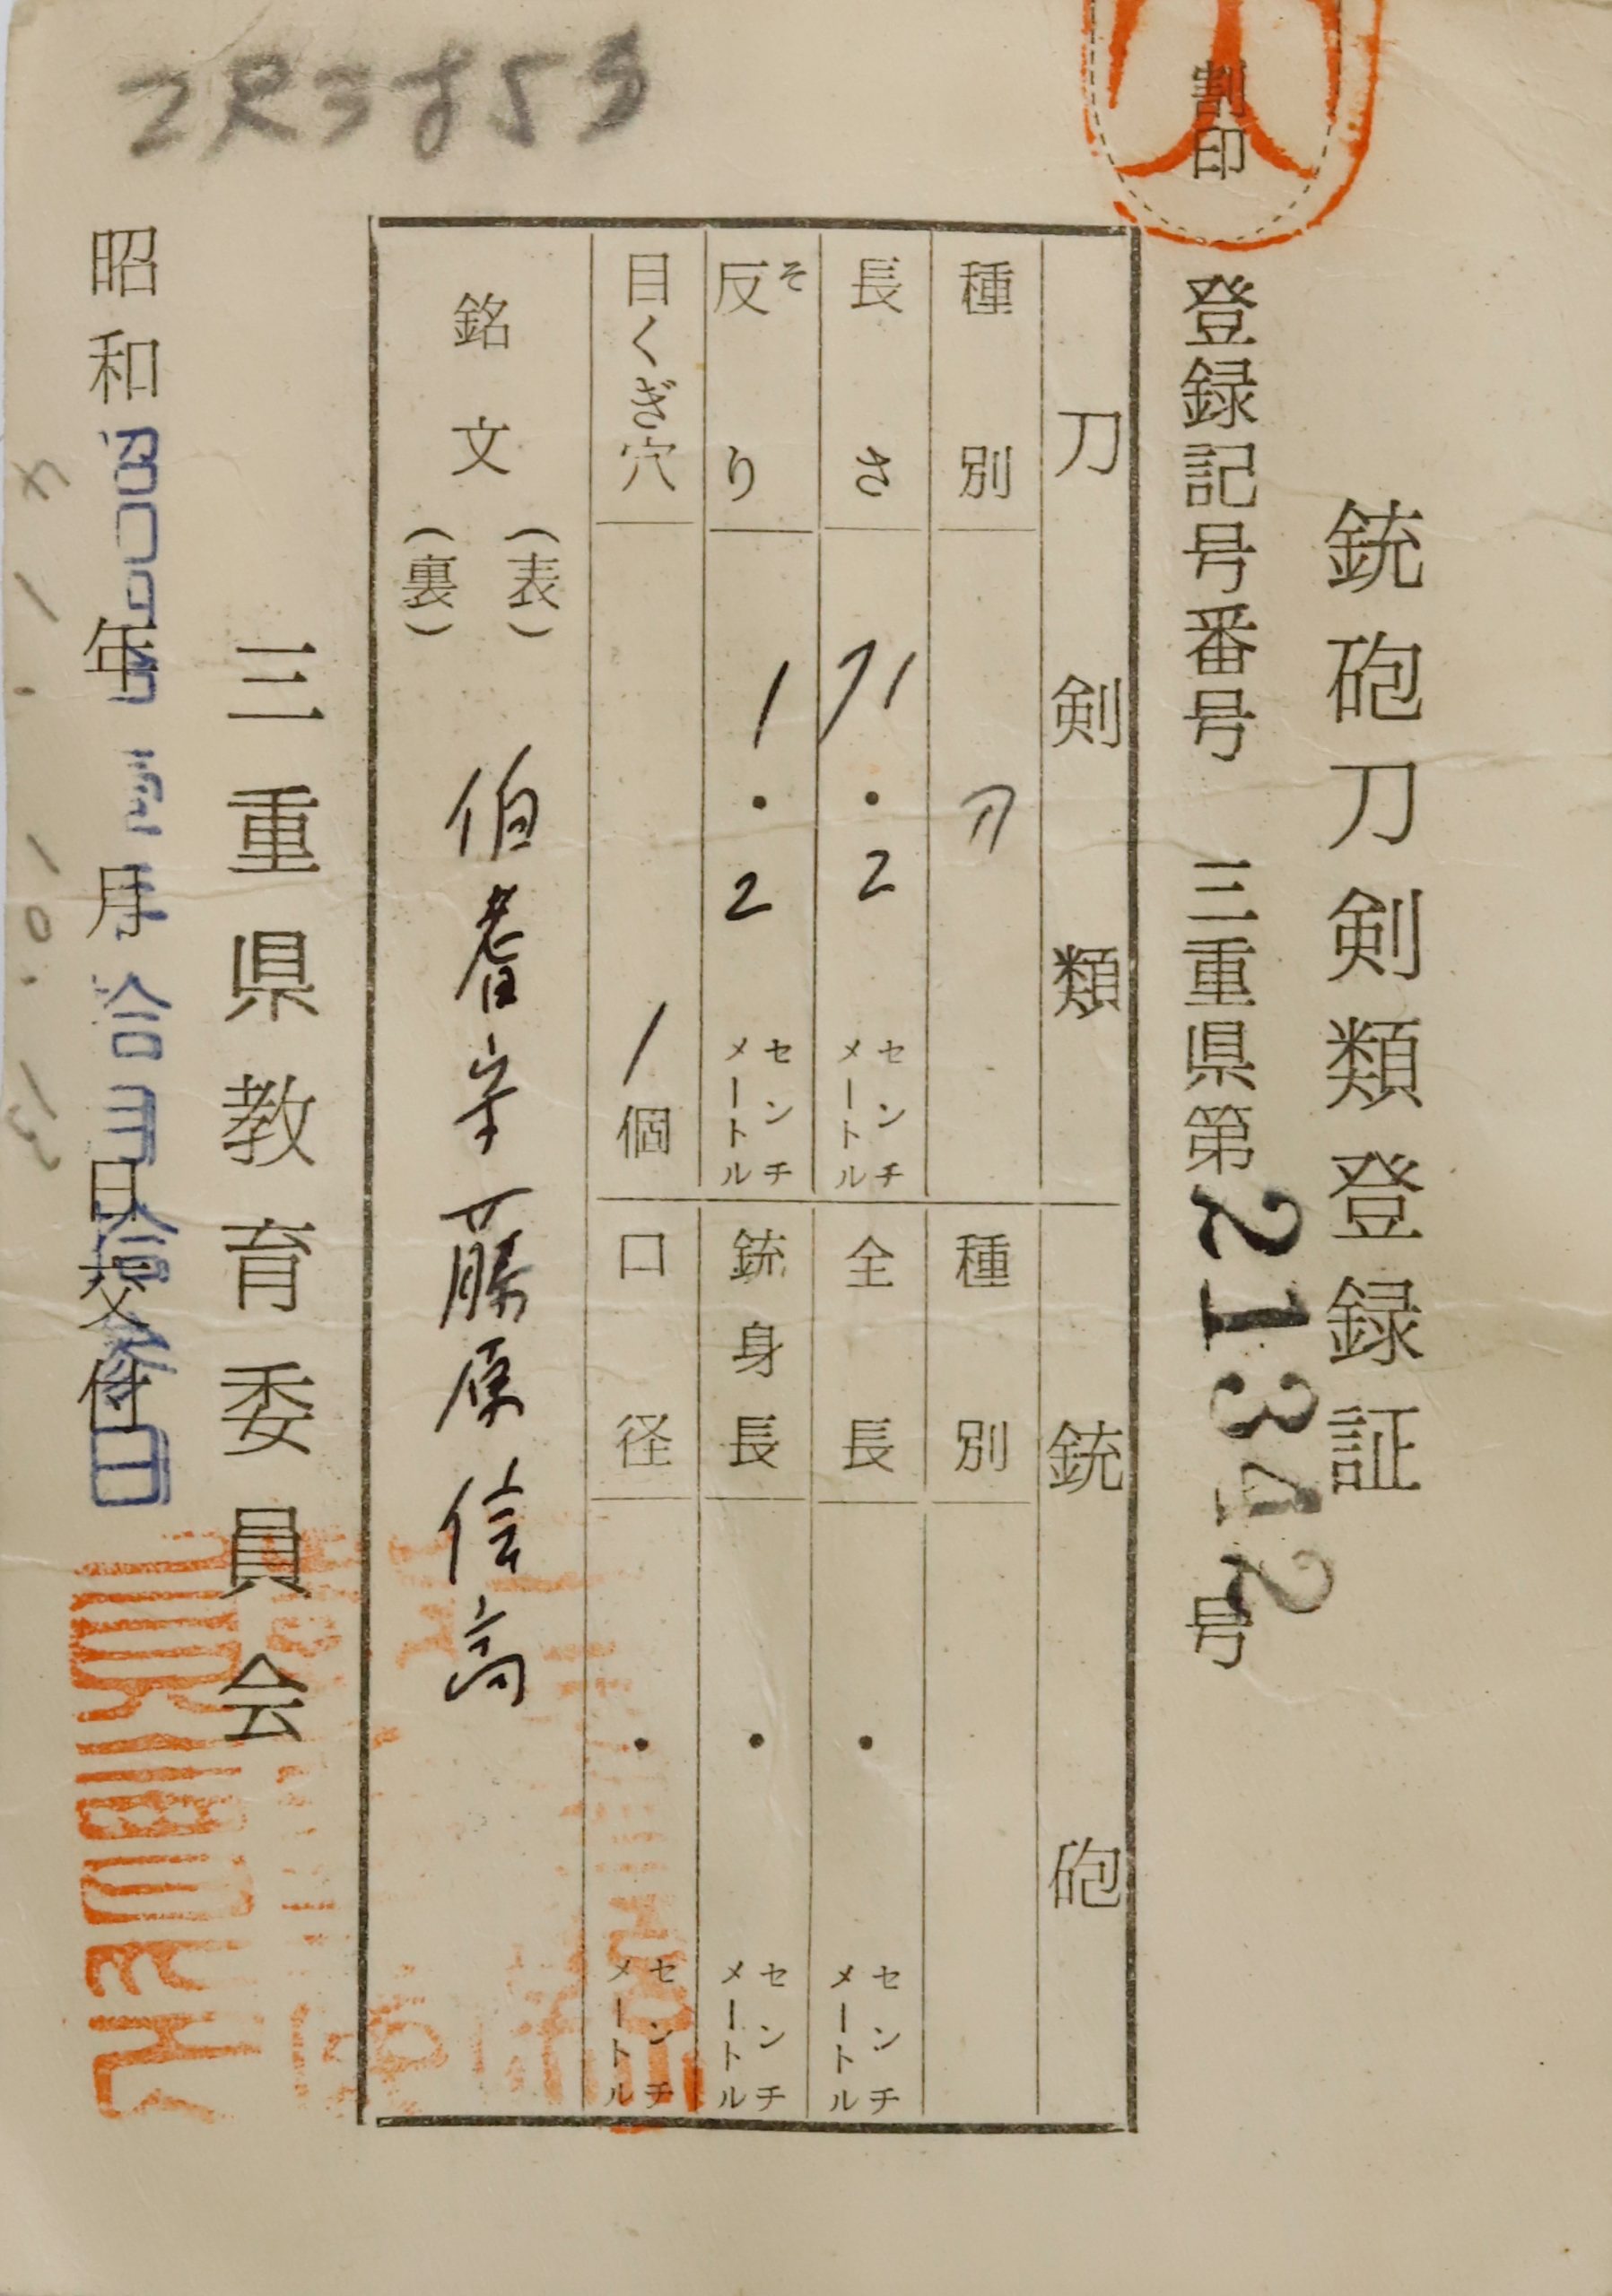 割印
銃砲刀剣類登録証
登録記号番号 三重県第21342号
刀剣類
種別 刀
長さ 71.2 センチメートル
反り そ 1.2 センチメートル
目くぎ穴 1個
銘文
(表) 伯耆守藤原信高
(裏)
銃砲
種別
全長 . センチメートル
銃身長 . センチメートル
口径 . センチメートル
三重県教育委員会
昭和 年 月 日交付
2尺3寸5分